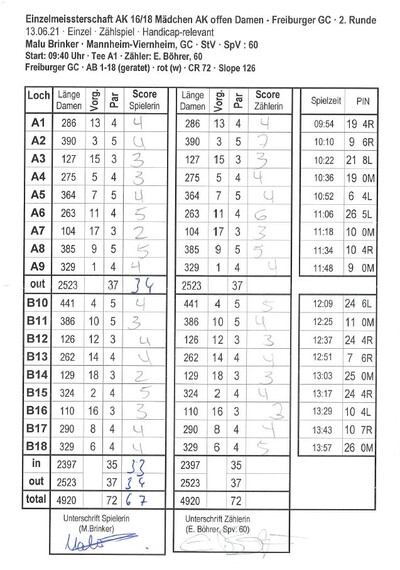 Einzelmeisterschaft AK 16/18 Mädchen AK offen Damen - Freiburger GC · 2. Runde
13.06.21 · Einzel · Zählspiel · Handicap-relevant
Malu Brinker · Mannheim-Viernheim, GC · StV · SpV : 60
Start: 09:40 Uhr · Tee A1 · Zähler: E. Böhrer, 60
Freiburger GC · AB 1-18 (geratet) · rot (w) · CR 72 · Slope 126
Loch Länge Damen Vorg. Par Score Spielerin Länge Damen Vorg. Par Score Zählerin Spielzeit PIN
A1 286 13 4 4 286 13 4 4 09:54 19 4R
A2 390 3 5 4 390 3 5 7 10:10 9 6R
A3 127 15 3 3 127 15 3 3 10:22 21 8L
A4 275 5 4 3 275 5 4 4 10:36 19 0M
A5 364 7 5 4 364 7 5 4 10:52 6 4L
A6 263 11 4 5 263 11 4 6 11:06 26 5L
A7 104 17 3 2 104 17 3 3 11:18 10 0M
A8 385 9 5 5 385 9 5 5 11:34 10 4R
A9 329 1 4 4 329 1 4 4 11:48 9 0M
out 2523 37 34 2523 37
B10 441 4 5 4 441 4 5 5 12:09 24 6L
B11 386 10 5 3 386 10 5 4 12:25 11 0M
B12 126 12 3 4 126 12 3 3 12:37 24 4R
B13 262 14 4 4 262 14 4 4 12:51 7 6R
B14 129 18 3 2 129 18 3 3 13:03 25 0M
B15 324 2 4 5 324 2 4 4 13:17 24 4R
B16 110 16 3 3 110 16 3 3 13:29 10 4L
B17 290 8 4 4 290 8 4 4 13:43 10 7R
B18 329 6 4 4 329 6 4 5 13:57 26 0M
in 2397 35 33 2397 35
out 2523 37 34 2523 37
total 4920 72 67 4920 72
Unterschrift Spielerin Unterschrift Zählerin
(M.Brinker) (E. Böhrer, Spv: 60)